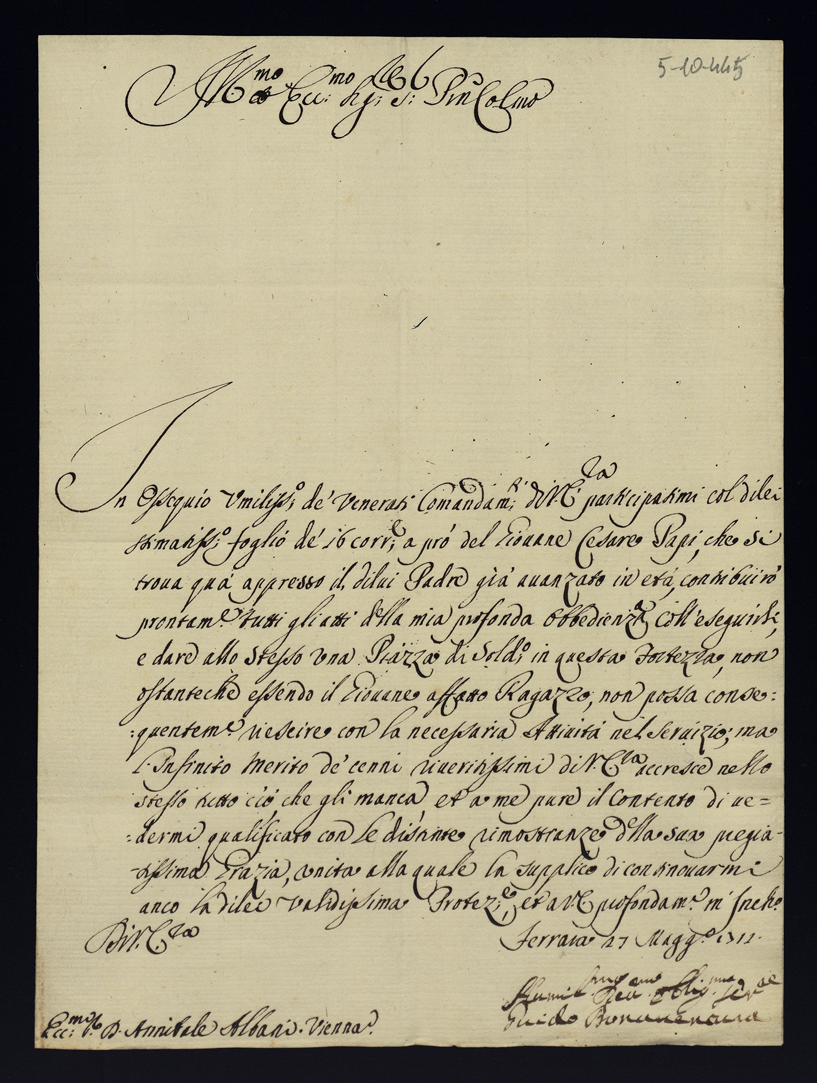 5-10-445
Ill.mo et Ecc.mo Sig.r S.r P.rn Col.mo
In Ossequio Umiliss.o de' Venerati Comandam.ti di V. E.za participatimi col di lei
stimatiss.o foglio de' 16 corr.e a pró del Giouane Cesare Papi, che si
troua quá appresso il di lui Padre giá auanzato in etá, contribuiró
prontam.e tutti gli atti della mia profonda Obbedienza coll' eseguirli,
e dare allo stesso una Piazza di Sold.o in questa Fortezza, non
ostanteche essendo il Giouane affatto Ragazzo, non possa conse=
=quentem.e riescire con la necessaria Attiuitá nel Seruizio; ma
l'Infinito Merito de' cenni riueritissimi di V. E.za accresce nello
stesso tutto ció che gli manca et a me pure il Contento di ue=
=dermi qualificato con le distinte rimostranze della sua pregia=
tissima Grazia, unita alla quale la supplico di continouarmi
anco la di lei Validissima Protez.e, et a V. E. profondam.e m' Inch.o
Di V. E.za
Ferrara 27 Magg.o 1711.
Humil.mo Deu.mo Oblig.mo Ser.re
Guido Bonauentura
Ecc.mo S. D. Annibale Albani. Vienna.